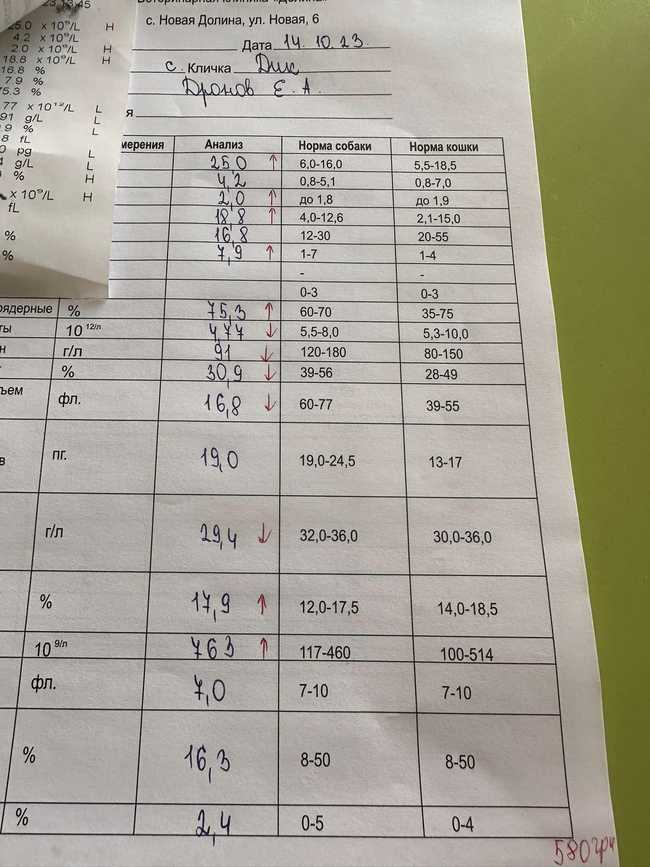 Ветеринарная клиника «Долина»
с. Новая Долина, ул. Новая, 6
23 13:45
25.0 x 10⁹/L H
4.2 x 10⁹/L
2.0 x 10⁹/L H
18.8 x 10⁹/L H
16.8 %
7.9 %
75.3 %
.77 x 10¹²/L L
91 g/L L
.9 % L
8 fL
0 pg L
4 g/L L
% H
x 10⁹/L H
fL
%
%
Дата 14.10.23.
с. Кличка Дик
Дронов Е.А.
я
мерения Анализ Норма собаки Норма кошки
25,0 ↑ 6,0-16,0 5,5-18,5
4,2 0,8-5,1 0,8-7,0
2,0 ↑ до 1,8 до 1,9
18,8 ↑ 4,0-12,6 2,1-15,0
16,8 12-30 20-55
7,9 ↑ 1-7 1-4
- -
0-3 0-3
рядерные % 75,3 ↑ 60-70 35-75
ты 10 12/л 4,77 ↓ 5,5-8,0 5,3-10,0
н г/л 91 ↓ 120-180 80-150
% 30,9 ↓ 39-56 28-49
ъем фл. 16,8 ↓ 60-77 39-55
в пг. 19,0 19,0-24,5 13-17
г/л 29,4 ↓ 32,0-36,0 30,0-36,0
% 17,9 ↑ 12,0-17,5 14,0-18,5
10 9/л 763 ↑ 117-460 100-514
фл. 7,0 7-10 7-10
% 16,3 8-50 8-50
% 2,4 0-5 0-4
580грн